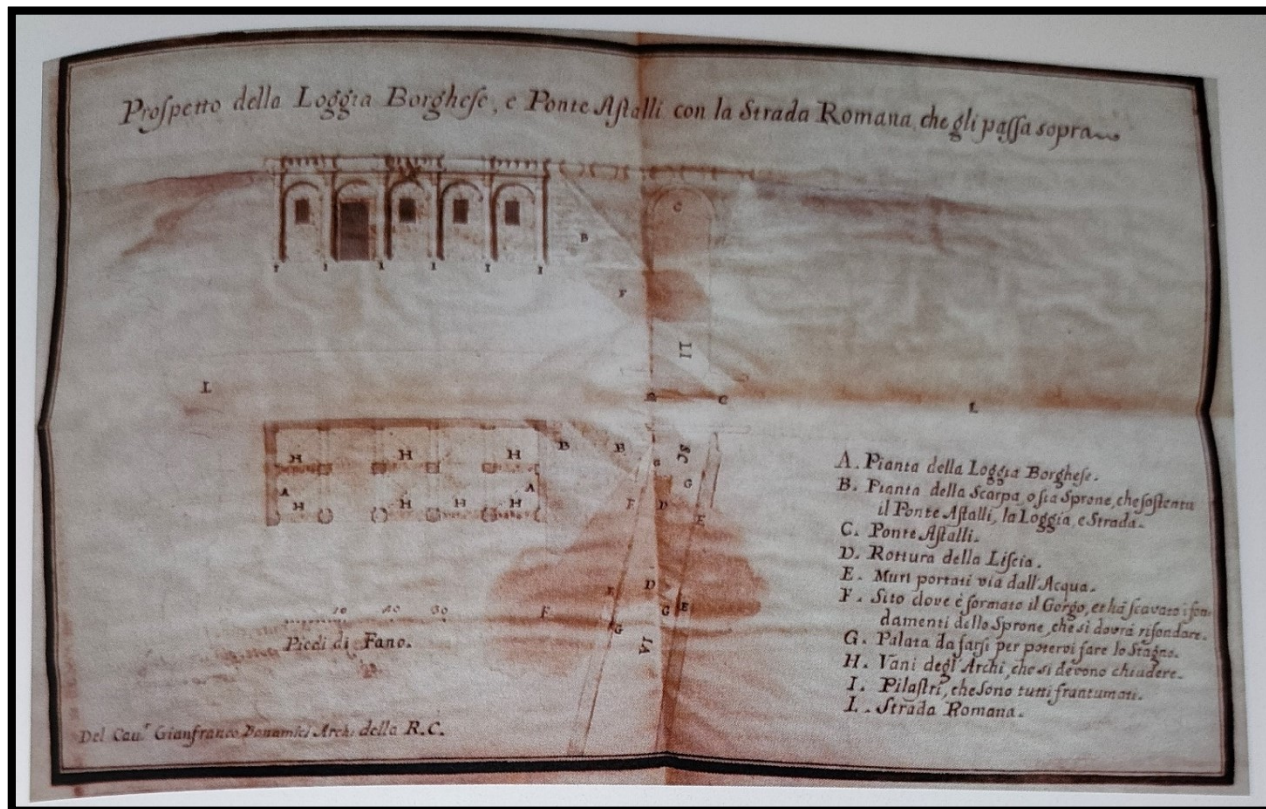 Proſpetto della Loggia Borgheſe, e Ponte Aſtalli con la Strada Romana, che gli paſſa sopra
C
B
F
I I I I I I
LI
L
C
L
B B
SC
H H H
G
A A
G
H H H H
F D E
D
E E
F G
G
LA
10 20 30
Piedi di Fano.
A. Pianta della Loggia Borgheſe.
B. Pianta della Scarpa, o ſia Sprone, che ſoſtenta
il Ponte Aſtalli, la Loggia, e Strada.
C. Ponte Aſtalli.
D. Rottura della Liſcia.
E. Muri portati via dall'Acqua.
F. Sito dove è formato il Gorgo, et hà ſcavato i fon-
damenti dello Sprone, che si dovrà rifondare.
G. Palata da farſi per potervi fare lo Stagno.
H. Vani degl'Archi, che si devono chiudere.
I. Pilaſtri, che Sono tutti frantumati.
L. Strada Romana.
Del Cau.r Gianfranco Bonamici Arch. della R.C.